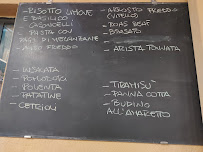 - RISOTTO LIMONE
E BASILICO
- CASONCELLI
- PASTA CON
RAGÙ DI MELANZANE
- FREDDO
- INSALATA
- POMODORI
- POLENTA
- PATATINE
- CETRIOLI
- ARROSTO FREDDO
(VITELLO)
- ROAST BEEF
- BRASATO
- ARISTA TONNATA
- TIRAMISÙ
- PANNA COTTA
- BUDINO
ALL'AMARETTO